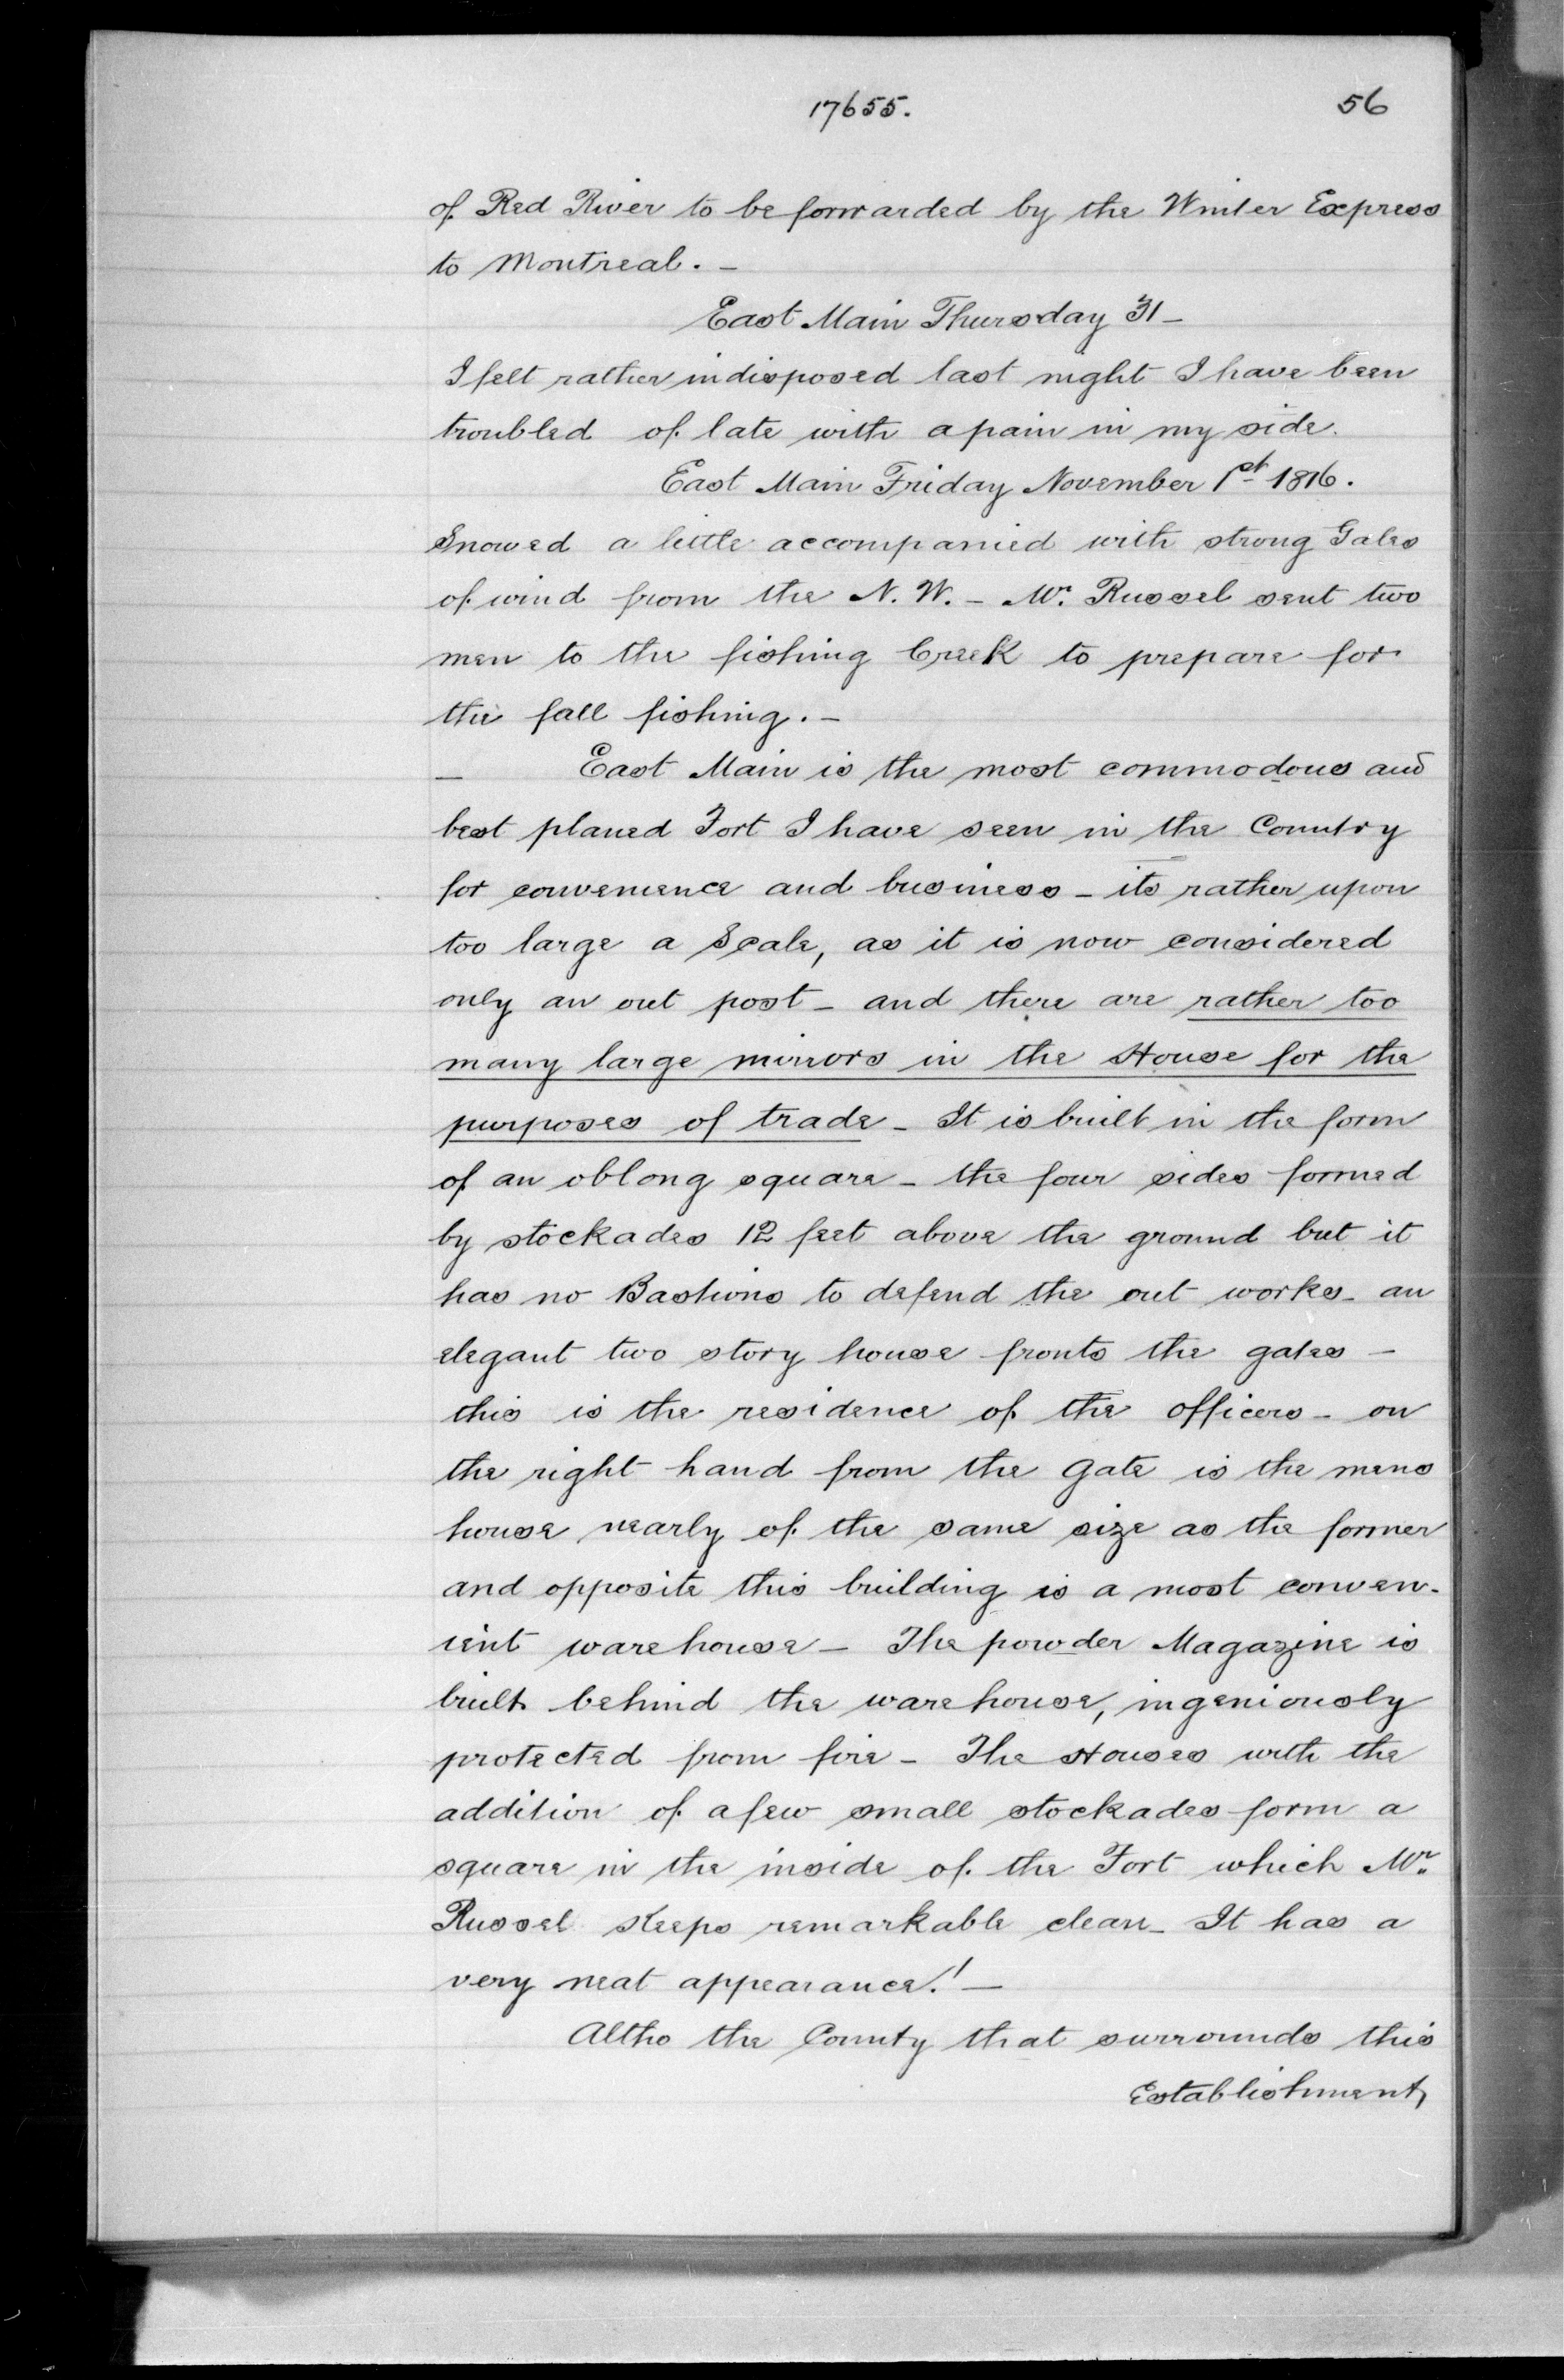 17655. 56
of Red River to be forwarded by the Winter Express
to Montreal. –
East Main Thursday 31 –
I felt rather indisposed last night I have been
troubled of late with a pain in my side.
East Main Friday November 1st 1816.
Snowed a little accompanied with strong Gales
of wind from the N. W. – Mr. Russel sent two
men to the fishing Creek to prepare for
the fall fishing. –
– East Main is the most commodous and
best planed Fort I have seen in the Country
for convenience and business – its rather upon
too large a Scale, as it is now considered
only an out post – and there are rather too
many large mirrors in the House for the
purposes of trade – It is built in the form
of an oblong square – the four sides formed
by stockades 12 feet above the ground but it
has no Bastions to defend the out works – an
elegant two story house fronts the gates –
this is the residence of the officers – on
the right hand from the gate is the mens
house nearly of the same size as the former
and opposite this building is a most conven-
ient warehouse – The powder Magazine is
built behind the warehouse, ingeniously
protected from fire – The Houses with the
addition of a few small stockades form a
square in the inside of the Fort which Mr.
Russel Keeps remarkable clean – It has a
very neat appearance! –
Altho the County that surrounds this
Establishment,